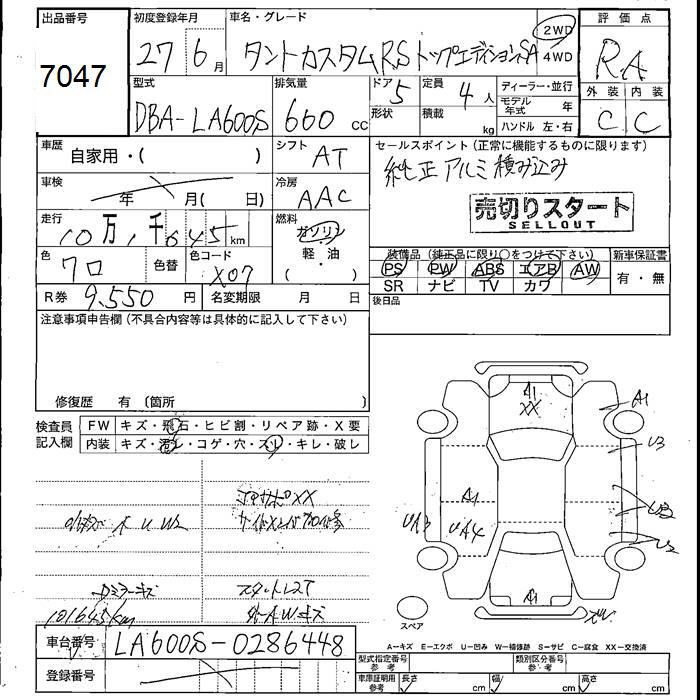 出品番号 初度登録年月 車名・グレード 2WD 評価点
7047 27 6月 タントカスタムRSトップエディションSA 4WD RA
型式 排気量 ドア 5 定員 4人 ディーラー・並行 外装 内装
DBA-LA600S 660 cc 形状 積載 kg モデル年式 年 C C
ハンドル 左・右
車歴 自家用・( ) シフト AT セールスポイント(正常に機能するものに限ります)
純正アルミ積み込み
車検 年 月( 日) 冷房 AAC
売切りスタート
SELLOUT
走行 10万1千645km 燃料 ガソリン・軽・油 ( )
色 クロ 色替 色コード X07
装備品(純正品に限り○をつけて下さい) 新車保証書
PS PW ABS エアB AW 有・無
SR ナビ TV カワ
R券 9,550円 名変期限 月 日 後日品
注意事項申告欄(不具合内容等は具体的に記入して下さい)
修復歴 有 〔箇所 〕
検査員記入欄 FW キズ・飛石・ヒビ割・リペア跡・X要
内装 キズ・汚レ・コゲ・穴・スレ・キレ・破レ
A1
XX
A1
U3
A1
UA3 UA4
U2
A1
Dミラーキズ
101645km
スペア
A-キズ E-エクボ U-凹み W-補修跡 S-サビ C-腐食 XX-交換済
車台番号 LA600S-0286448
登録番号
型式指定番号 参考 類別区分番号 参考
車庫証明用 参考 長さ cm 幅 cm 高さ cm